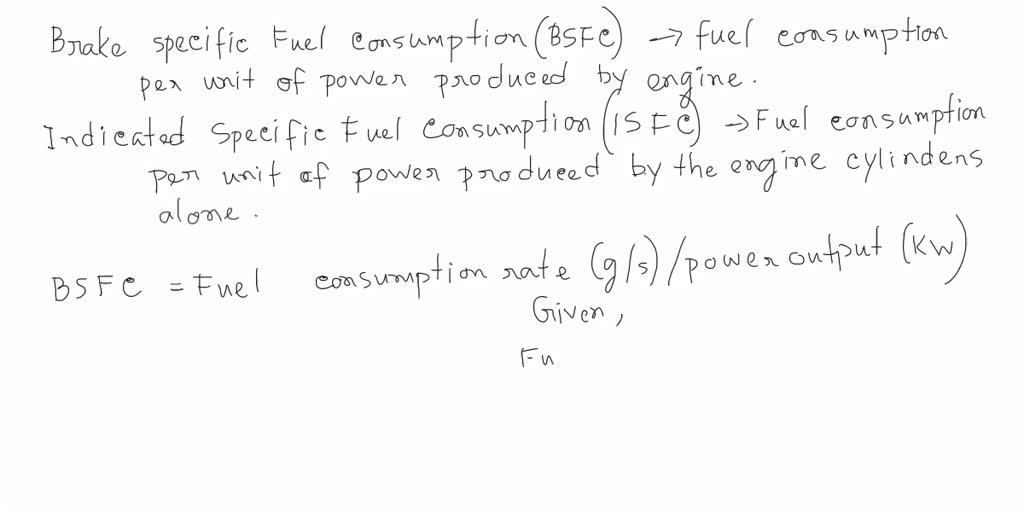 Brake specific Fuel Consumption (BSFC) → fuel consumption
per unit of power produced by engine.
Indicated Specific Fuel Consumption (ISFC) → Fuel consumption
per unit of power produced by the engine cylinders
alone.
BSFC = Fuel consumption rate (g/s)/power output (KW)
Given,
Fu